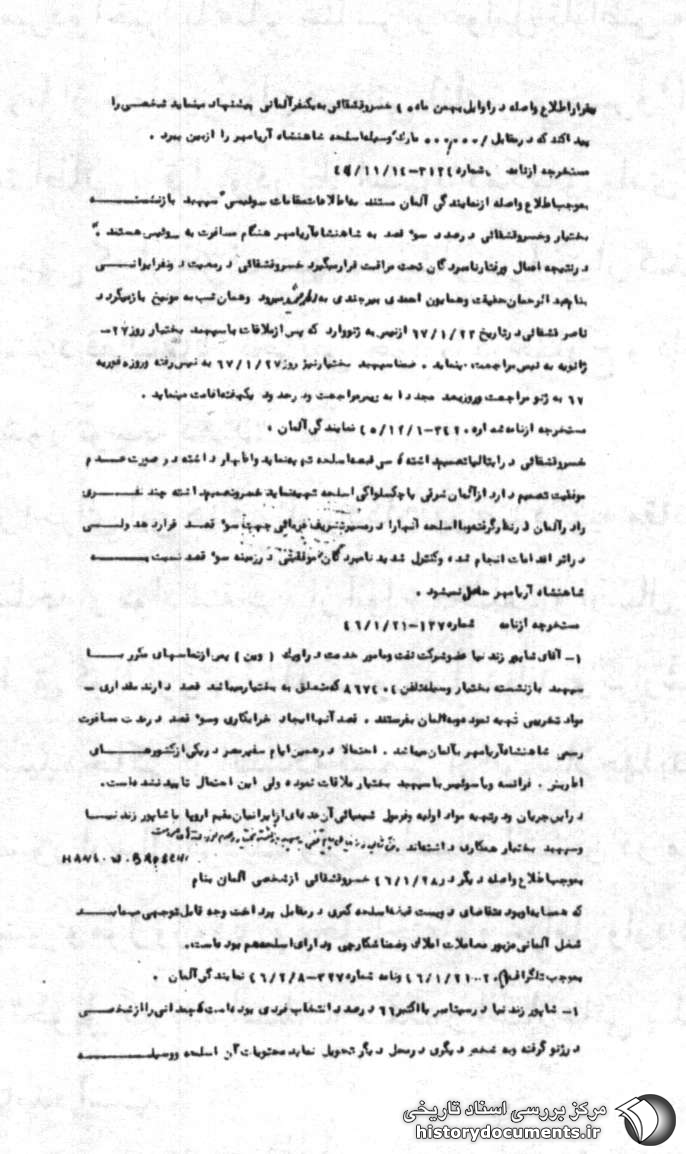 بقرار اطلاع واصله در اوایل بهمن ماه ۴۵ خسرو قشقائی به یکنفر آلمانی پیشنهاد مینماید شخصی را
پیدا کند که در مقابل /۰۰۰٫۰۰۰ مارک وسیله اسلحه شاهنشاه آریامهر را از بین ببرد .
مستخرجه از نامه شماره ۳۱۲۴-۴۵/۱۱/۱۴
بموجب اطلاع واصله از نمایندگی آلمان مستند به اطلاعات مقامات سوئیسی سپهبد بازنشسته
بختیار و خسرو قشقائی در صدد سوء قصد به شاهنشاه آریامهر هنگام مسافرت به سوئیس هستند .
در نتیجه اعمال و رفتار نامبردگان تحت مراقبت قرار میگیرد خسرو قشقائی در معیت دو نفر ایرانی
بنام عبد الرحمان حقیقت و همایون احمدی بیرجندی به میرود و همان شب به مونیخ باز میگردد
ناصر قشقائی در تاریخ ۶۷/۱/۲۲ از نیس به ژنو وارد که پس از ملاقات با سپهبد بختیار روز ۲۷-
ژانویه به نیس مراجعت مینماید . ضمنا سپهبد بختیار نیز روز ۶۷/۱/۲۷ به نیس رفته و روز ه فوریه
۶۷ به ژنو مراجعت و روز بعد مجددا به مراجعت و در حدود یکهفته اقامت مینماید .
مستخرجه از نامه شماره ۳۴۲۰-۴۵/۱۲/۱ نمایندگی آلمان .
خسرو قشقائی در ایتالیا تصمیم داشته سی قبضه اسلحه تهیه نماید و اظهار داشته در صورت عدم
موفقیت تصمیم دارد از آلمان شرقی یا چکسلواکی اسلحه تهیه نماید خسرو تصمیم داشته چند نفری
را در آلمان در نظر گرفته و با اسلحه آنها را در مسیر تشریف فرمائی جهت سوء قصد قرار دهد ولی
در اثر اقدامات انجام شده و کنترل شدید نامبردگان موفقیتی در زمینه سوء قصد نسبت به
شاهنشاه آریامهر حاصل نمیشود .
مستخرجه از نامه شماره ۱۲۷-۴۶/۱/۲۱
۱- آقای شاپور زند نیا عضو شرکت نفت و مامور خدمت در اوپک ( وین ) پس از تماسهای مکرر با
سپهبد بازنشسته بختیار وسیله تلفن ۸۶۷۴۰۴ که متعلق به بختیار میباشد قصد دارند مقداری -
مواد تخریبی تهیه نموده و به آلمان بفرستند . قصد آنها ایجاد خرابکاری و سوء قصد در مدت مسافرت
رسمی شاهنشاه آریامهر به آلمان میباشد . احتمالا در همین ایام سفیر مصر در یکی از کشورهای
اطریش . فرانسه و یا سوئیس با سپهبد بختیار ملاقات نموده ولی این احتمال تایید نشده است.
در این جریان و در تهیه مواد اولیه و فرمول شیمیائی آن عده ای از ایرانیان مقیم اروپا با شاپور زند نیا
و سپهبد بختیار همکاری داشته اند
HANS. W.
بموجب اطلاع واصله دیگر در ۴۶/۱/۲۸ خسرو قشقائی از شخصی آلمان بنام
که همسایه او بود تقاضای دویست قبضه اسلحه کمری در مقابل پرداخت وجه قابل توجهی مینماید
شغل آلمانی مزبور معاملات املاک و ضمنا شکارچی و دارای اسلحه هم بوده است.
بموجب تلگراف ۲۰-۴۶/۱/۲۱ و نامه شماره ۳۲۷-۴۶/۲/۸ نمایندگی آلمان .
۱- شاپور زند نیا در سپتامبر یا اکتبر ۶۶ در صدد انتخاب فردی بوده است که چمدانی را از شخصی
در ژنو گرفته و به شخص دیگری در محل دیگر تحویل نماید محتویات آن اسلحه و وسیله
مرکز بررسی اسناد تاریخی
historydocuments.ir